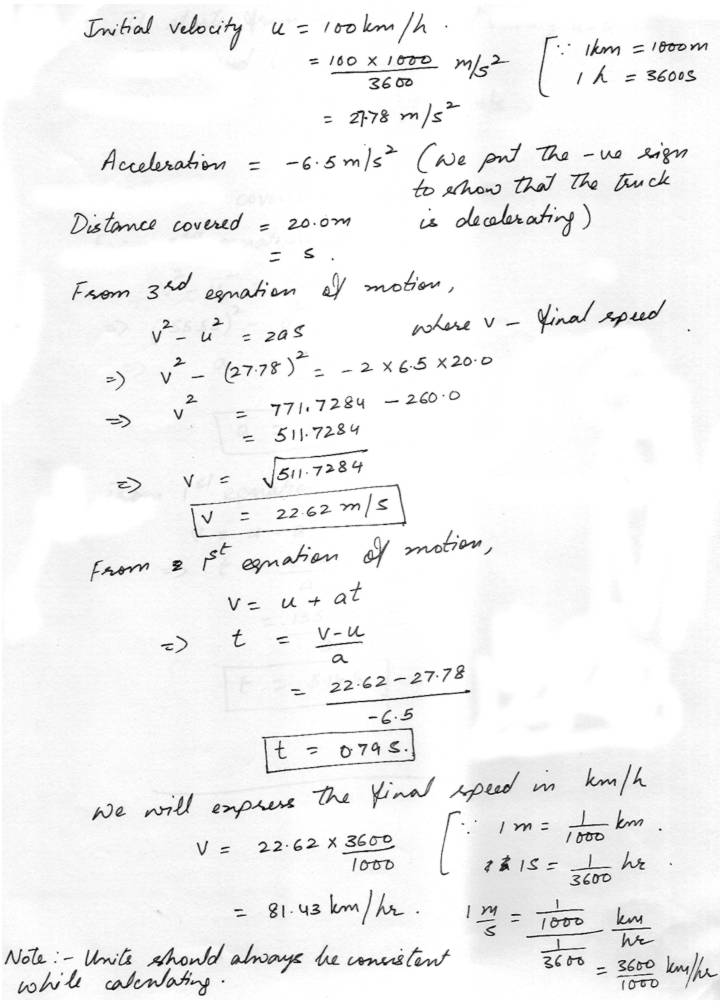 Initial velocity u = 100 km/h.
= 100 × 1000 / 3600 m/s² [∵ 1km = 1000m
1 h = 3600s
= 27.78 m/s²
Acceleration = -6.5 m/s² (we put the -ve sign
to show that the truck
is decelerating)
Distance covered = 20.0m
= s.
From 3rd equation of motion,
v² - u² = 2as where v - final speed.
⇒ v² - (27.78)² = - 2 × 6.5 × 20.0
⇒ v² = 771.7284 - 260.0
= 511.7284
⇒ v = √511.7284
v = 22.62 m/s
From 1st equation of motion,
v = u + at
⇒ t = v-u / a
= 22.62 - 27.78 / -6.5
t = 0.79 s.
We will express the final speed in km/h
v = 22.62 × 3600/1000 [∵ 1 m = 1/1000 km.
1s = 1/3600 hr.
= 81.43 km/hr. 1 m/s = 1/1000 / 1/3600 km/hr
= 3600/1000 km/hr
Note :- Units should always be consistent
while calculating.